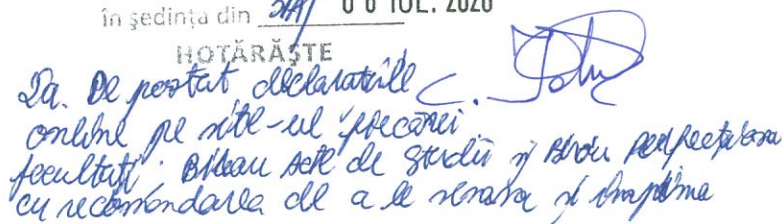 în ședința din 06 IUL. 2020
HOTĂRĂȘTE
Da. De postat declarațiile
online pe site-ul fiecărei
facultăți. Birou Acte de Studii și Birou
cu recomandarea de a le și